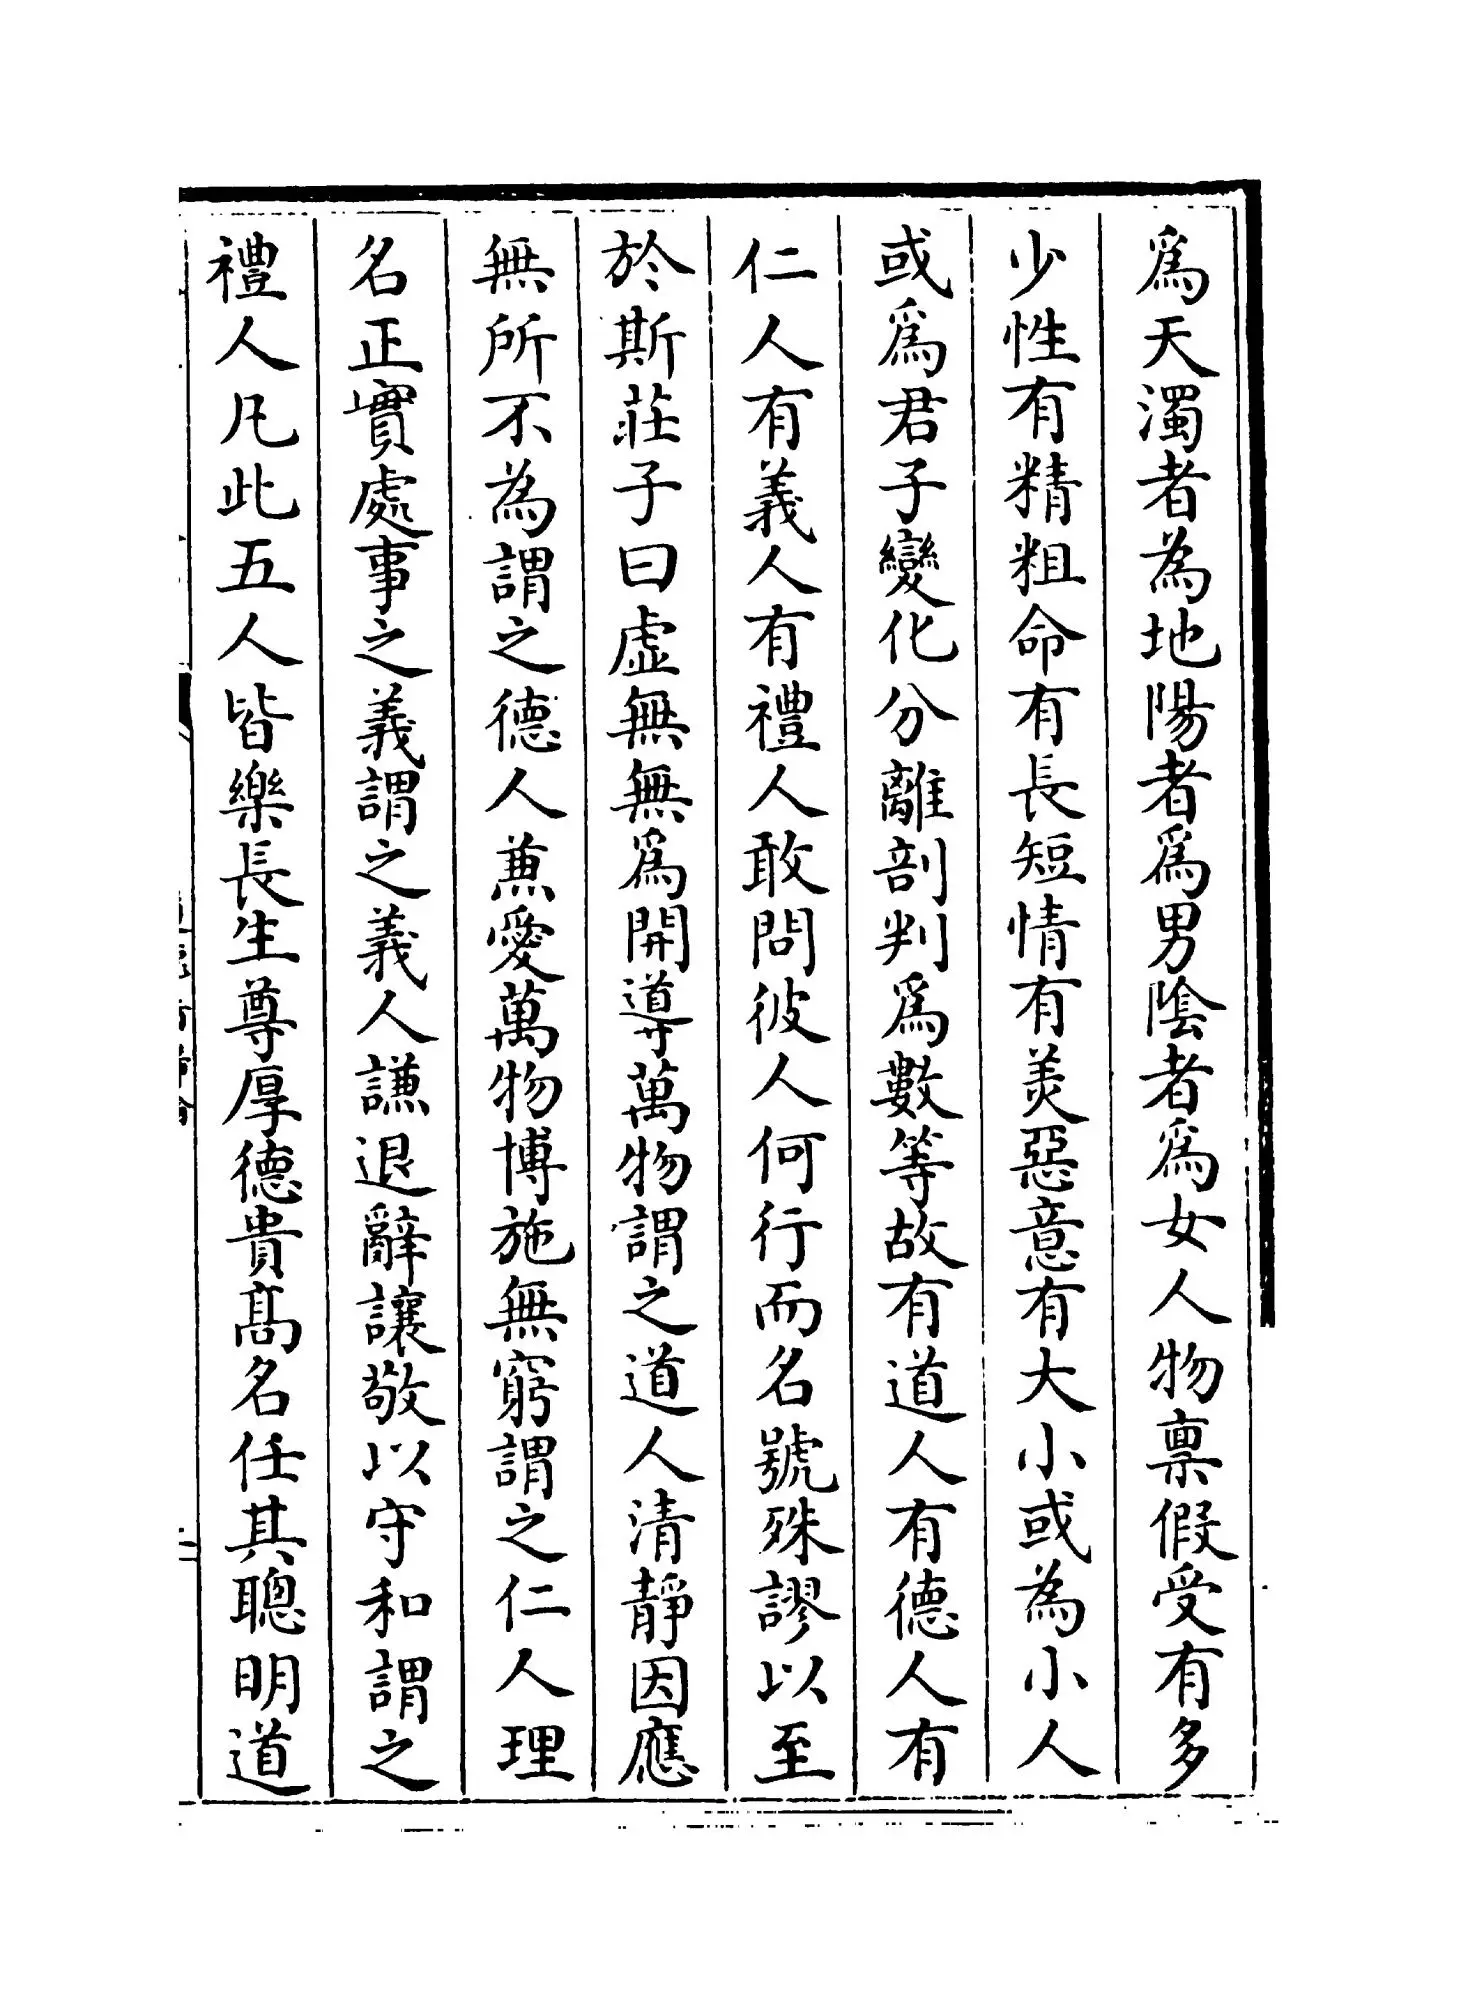 爲天濁者為地陽者爲男陰者爲女人物禀假受有多
少性有精粗命有長短情有羙惡意有大小或為小人
或爲君子變化分離剖判爲數等故有道人有德人有
仁人有義人有禮人敢問彼人何行而名號殊謬以至
於斯莊子曰虛無無爲開導萬物謂之道人清靜因應
無所不為謂之德人兼愛萬物博施無窮謂之仁人理
名正實處事之義謂之義人謙退辭讓敬以守和謂之
禮人凡此五人皆樂長生尊厚德貴髙名任其聰明道